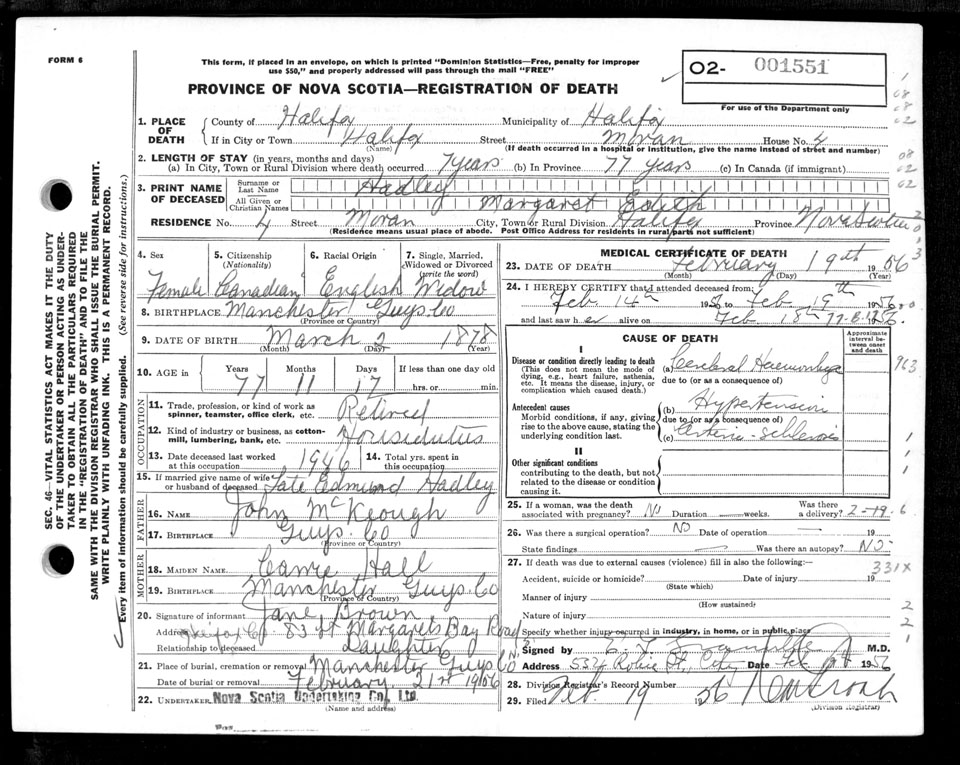 FORM 6
This form, if placed in an envelope, on which is printed "Dominion Statistics—Free, penalty for improper
use $50," and properly addressed will pass through the mail "FREE"
PROVINCE OF NOVA SCOTIA—REGISTRATION OF DEATH
02- 001551
For use of the Department only
SEC. 46—VITAL STATISTICS ACT MAKES IT THE DUTY
OF THE UNDERTAKER OR PERSON ACTING AS UNDER-
TAKER TO OBTAIN ALL THE PARTICULARS REQUIRED
IN THE "REGISTRATION OF DEATH" AND TO FILE THE
SAME WITH THE DIVISION REGISTRAR WHO SHALL ISSUE THE BURIAL PERMIT.
WRITE PLAINLY WITH UNFADING INK. THIS IS A PERMANENT RECORD.
Every item of information should be carefully supplied. (See reverse side for instructions.)
1. PLACE OF DEATH
County of Halifax Municipality of Halifax
If in City or Town Halifax Street Moran House No. 4
(Name) (If death occurred in a hospital or institution, give the name instead of street and number)
2. LENGTH OF STAY (in years, months and days)
(a) In City, Town or Rural Division where death occurred 7 years (b) In Province 77 years (c) In Canada (if immigrant)
3. PRINT NAME OF DECEASED
Surname or Last Name Hadley
All Given or Christian Names Margaret Edith
RESIDENCE No. 4 Street Moran City, Town or Rural Division Halifax Province Nova Scotia
(Residence means usual place of abode. Post Office Address for residents in rural parts not sufficient)
4. Sex Female
5. Citizenship (Nationality) Canadian
6. Racial Origin English
7. Single, Married, Widowed or Divorced (write the word) Widow
8. BIRTHPLACE Manchester Guys. Co
(Province or Country)
9. DATE OF BIRTH March 2 1878
(Month) (Day) (Year)
10. AGE in Years 77 Months 11 Days 17 If less than one day old hrs. or min.
OCCUPATION
11. Trade, profession, or kind of work as spinner, teamster, office clerk, etc. Retired
12. Kind of industry or business, as cotton-mill, lumbering, bank, etc. Houseduties
13. Date deceased last worked at this occupation 1946
14. Total yrs. spent in this occupation
15. If married give name of wife or husband of deceased Late Edmund Hadley
FATHER
16. NAME John McKeough
17. BIRTHPLACE Guys. Co
(Province or Country)
MOTHER
18. MAIDEN NAME Carrie Hall
19. BIRTHPLACE Manchester Guys. Co
(Province or Country)
20. Signature of informant Jane Brown
Address 83 St Margarets Bay Road
Relationship to deceased Daughter
21. Place of burial, cremation or removal Manchester Guys Co
Date of burial or removal February 21st 1956
22. UNDERTAKER Nova Scotia Undertaking Co., Ltd.
(Name and address)
MEDICAL CERTIFICATE OF DEATH
23. DATE OF DEATH February 19th 1956
(Month) (Day) (Year)
24. I HEREBY CERTIFY that I attended deceased from:
Feb 14th 1956 to Feb 19th 1956
and last saw her alive on Feb 18th
CAUSE OF DEATH
Approximate interval between onset and death
I
Disease or condition directly leading to death
(This does not mean the mode of dying, e.g., heart failure, asthenia, etc. It means the disease, injury, or complication which caused death.)
(a) Cerebral Haemorrhage
due to (or as a consequence of)
Antecedent causes
Morbid conditions, if any, giving rise to the above cause, stating the underlying condition last.
(b) Hypertension
due to (or as a consequence of)
(c)
II
Other significant conditions
contributing to the death, but not related to the disease or condition causing it.
25. If a woman, was the death associated with pregnancy? No Duration weeks. Was there a delivery?
2-19-6
26. Was there a surgical operation? NO Date of operation 19
State findings Was there an autopsy? NO
27. If death was due to external causes (violence) fill in also the following:
331X
Accident, suicide or homicide? Date of injury 19
(State which)
Manner of injury
(How sustained)
Nature of injury
Specify whether injury occurred in industry, in home, or in public place
Signed by M.D.
Address Robie St., City Date Feb 1956
28. Division Registrar's Record Number
29. Filed Feb. 19 1956
(Division Registrar)